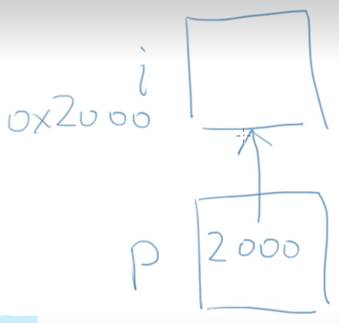 i
0x2000
p 2000